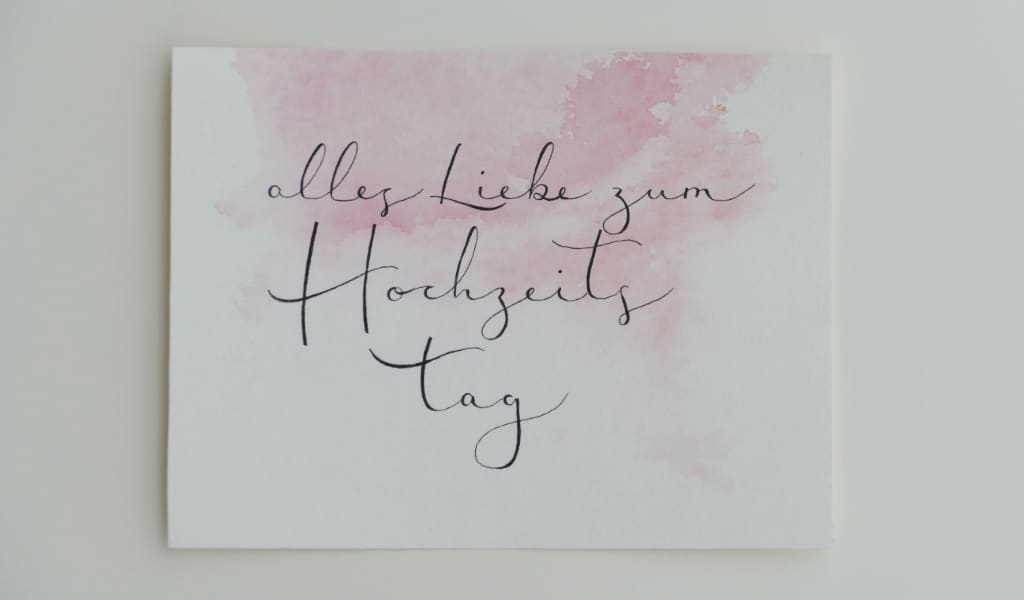 alles Liebe zum
Hochzeits
tag